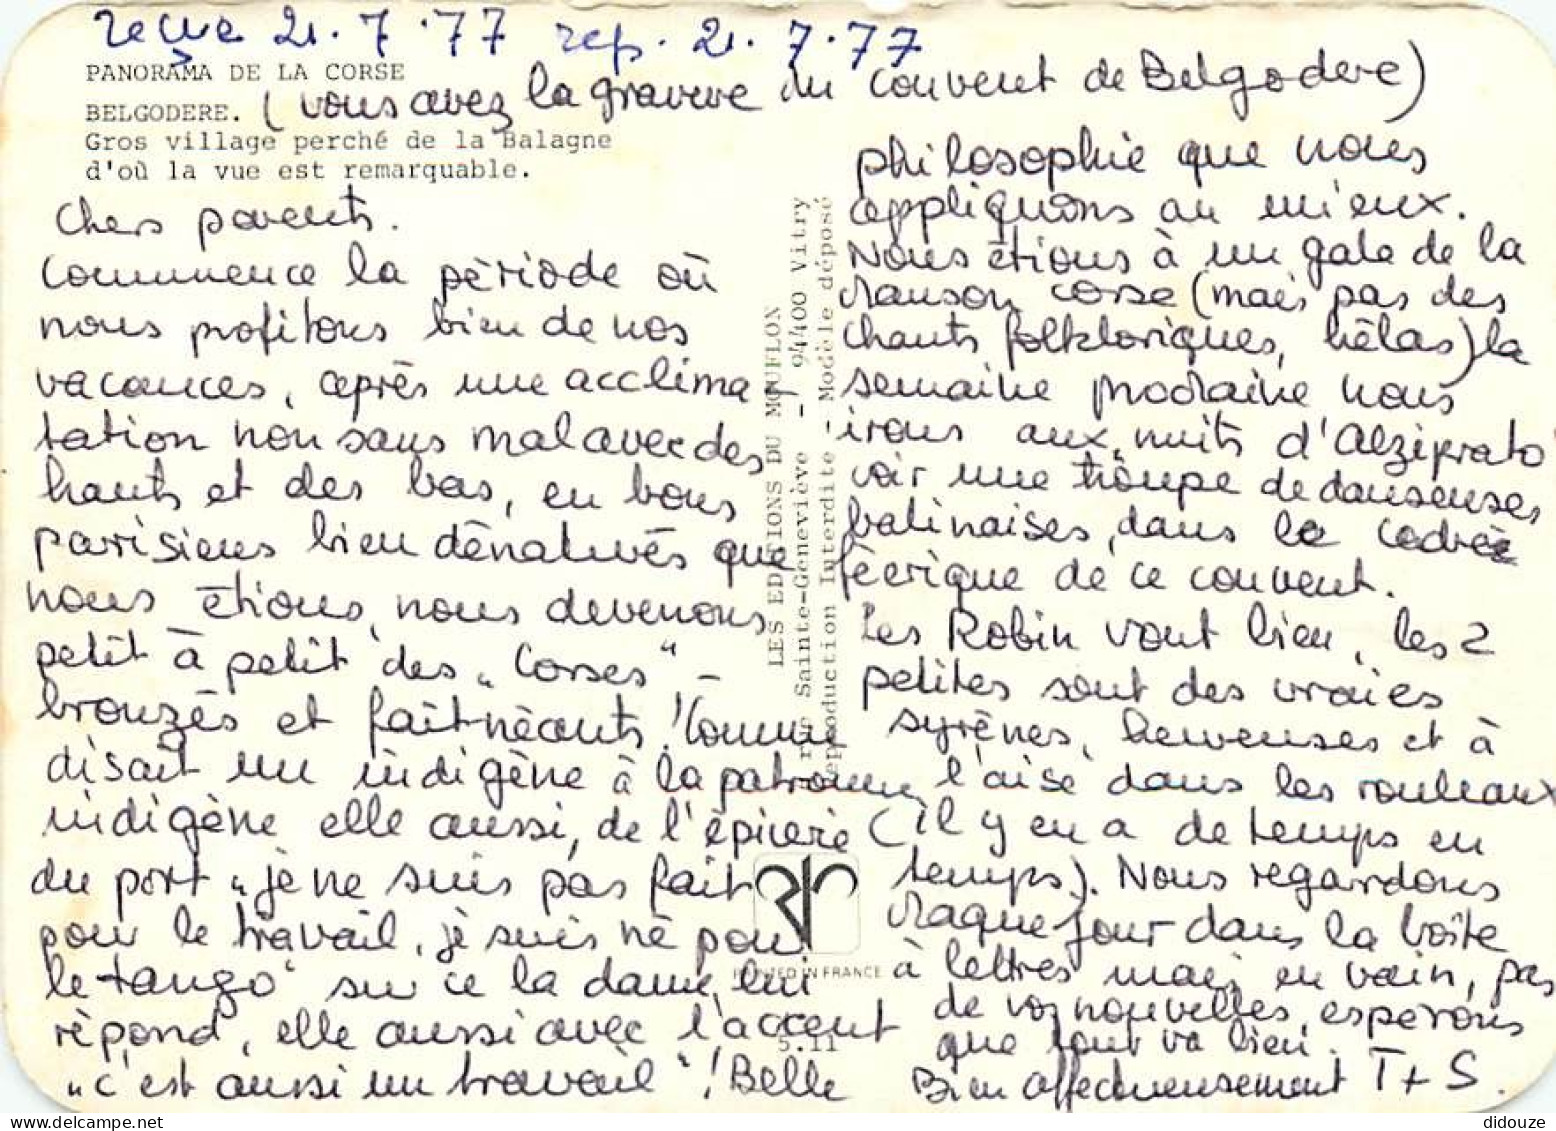 reçue 21.7.77 rep. 21.7.77
PANORAMA DE LA CORSE
BELGODERE. (vous avez la gravure du couvent de Belgodere)
Gros village perché de la Balagne
d'où la vue est remarquable.
Chers parents.
Commence la période où
nous profitons bien de nos
vacances, après une acclima
tation non sans mal avec des
hauts et des bas, en bons
parisiens bien dénaturés que
nous étions, nous devenons
petit à petit des "Corses" -
bronzés et fait-nécants ! Comme
disait un indigène à la patronne,
indigène elle aussi, de l'épicerie
du port "je ne suis pas fait
pour le travail, je suis né pour
le tango" sur ce la dame lui
répond, elle aussi avec l'accent
"c'est aussi un travail" ! Belle
LES EDITIONS DU MOUFLON
rue Sainte-Geneviève - 94400 Vitry
Reproduction Interdite - Modèle déposé
PRINTED IN FRANCE
5.11
philosophie que nous
appliquons au mieux.
Nous étions à un gala de la
chanson corse (mais pas des
chants folkloriques, hélas) la
semaine prochaine nous
irons aux "nuits d'Alziprato"
voir une troupe de danseuses
balinaises, dans le cadre
féerique de ce couvent.
Les Robin vont bien, les 2
petites sont des vraies
syrènes, heureuses et à
l'aise dans les rouleaux
(il y en a de temps en
temps). Nous regardons
chaque jour dans la boîte
à lettres mais en vain, pas
de vos nouvelles, espérons
que tout va bien.
Bien affectueusement T + S.
didouze